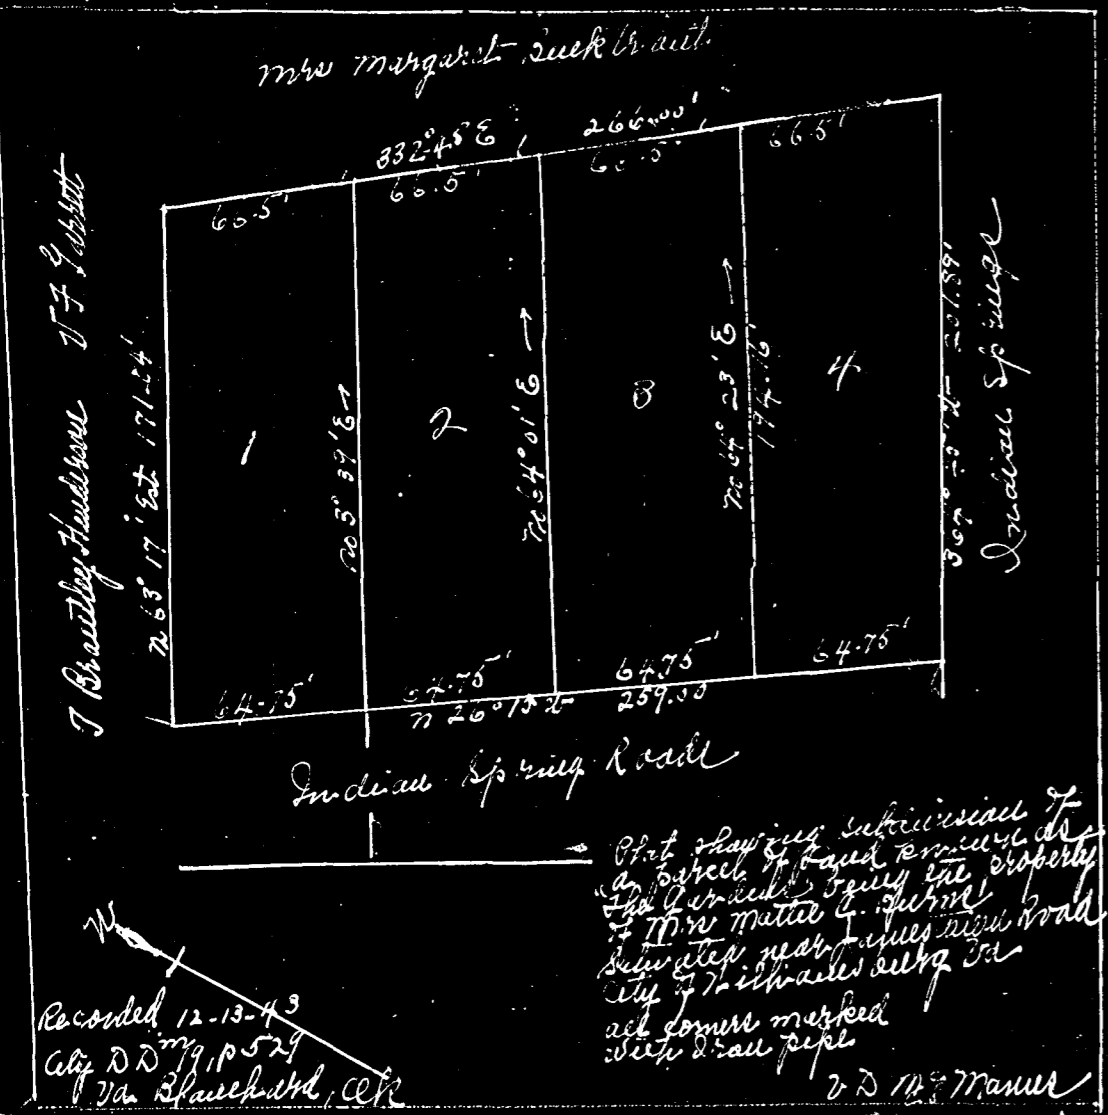 Mrs Margaret Bucktrout
332° 45 E 266.00'
66.5' 66.5' 66.5' 66.5'
T Brantley Henderson V F Garrett
N 63° 17' Est 171.24'
1
N 3° 39' E →
2
N 64° 01' E →
3
N 64° 23' E →
194.16'
4
201.89'
Indian Springs
64.75' 64.75' 64.75' 64.75'
N 26° 15 259.00
Indian Spring Roade
Plat showing subdivision of
a parcel of Land known as
"The Gardens" being the property
of Mrs Mattie C.
Situated near Jamestown Road
City of Williamsburg Va
all corners marked
with Iron pipe
V D McManus
N
Recorded 12-13-43
City D B 19, P 529
Va Blanchard, Clk